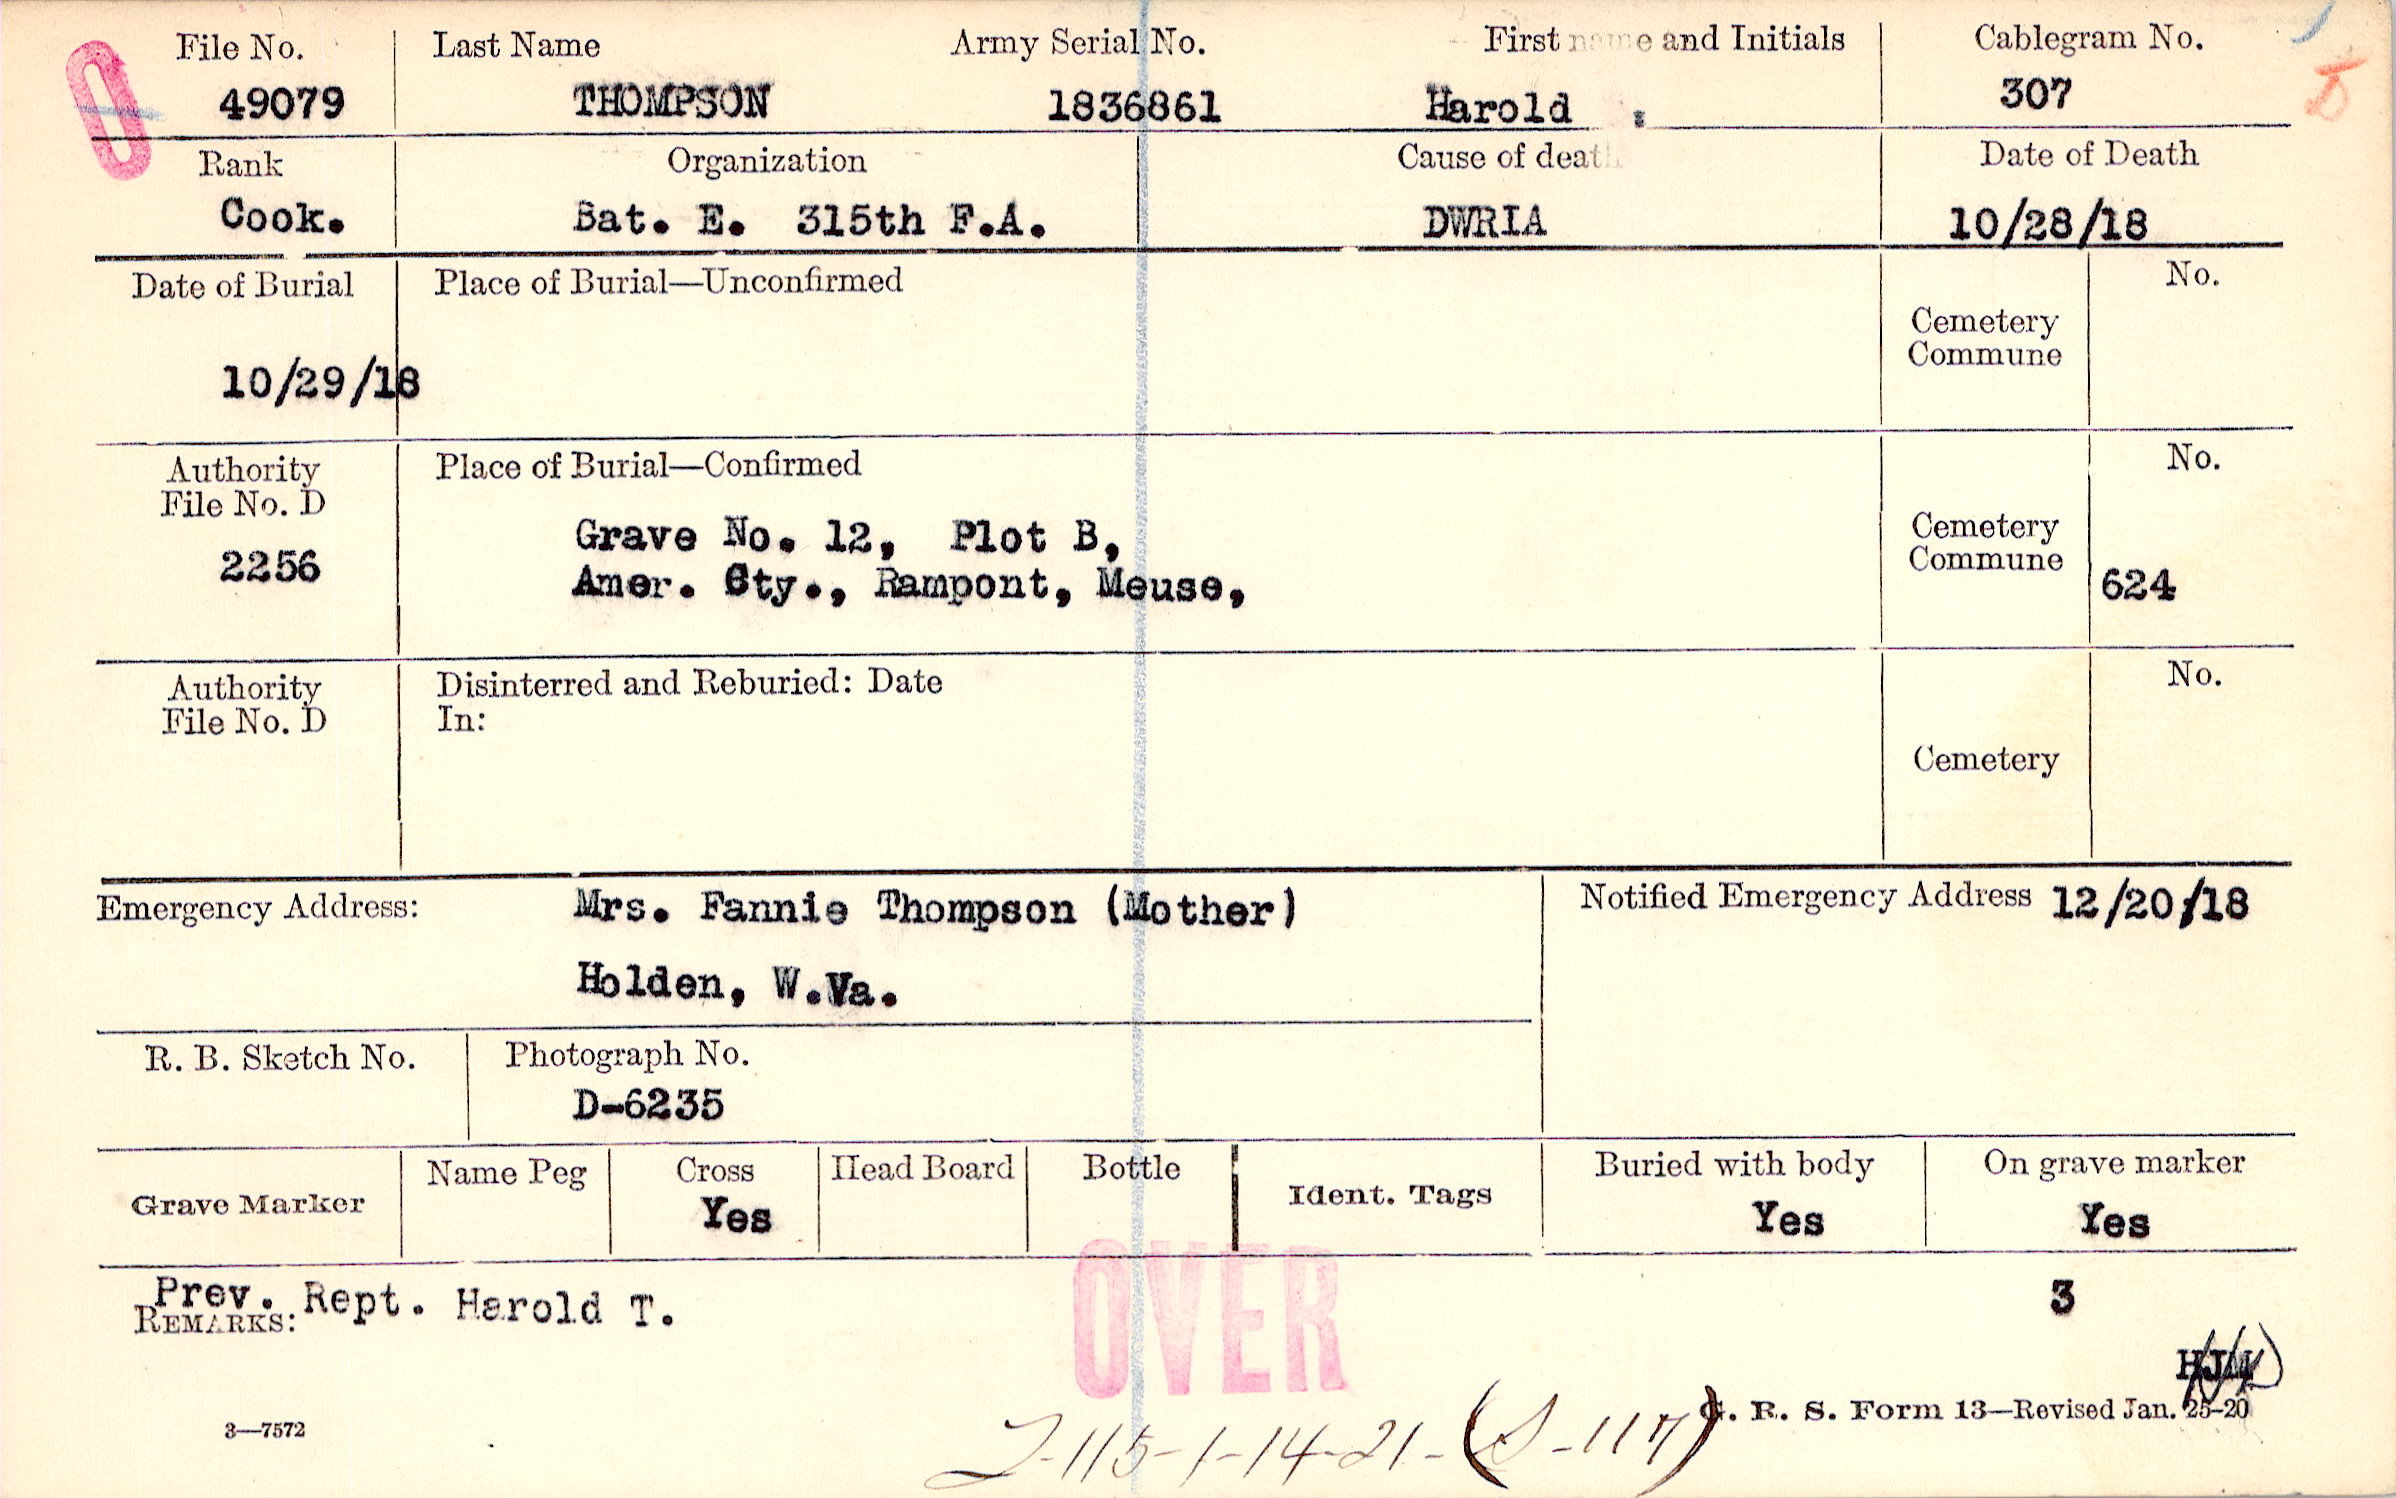 File No. Last Name Army Serial No. First name and Initials Cablegram No.
49079 THOMPSON 1836861 Harold 307
Rank Organization Cause of death Date of Death
Cook. Bat. E. 315th F.A. DWRIA 10/28/18
Date of Burial Place of Burial—Unconfirmed No.
Cemetery
Commune
10/29/18
Authority Place of Burial—Confirmed No.
File No. D
Cemetery
Commune
2256 Grave No. 12, Plot B,
Amer. Cty., Rampont, Meuse, 624
Authority Disinterred and Reburied: Date No.
File No. D In:
Cemetery
Emergency Address: Mrs. Fannie Thompson (Mother) Notified Emergency Address 12/20/18
Holden, W.Va.
R. B. Sketch No. Photograph No.
D-6235
Grave Marker Name Peg Cross Head Board Bottle Ident. Tags Buried with body On grave marker
Yes Yes Yes
Prev. Rept. Harold T. 3
REMARKS:
OVER
HJM
G. R. S. Form 13—Revised Jan. 25-20
3—7572
-115-1-14-21-(S-117)